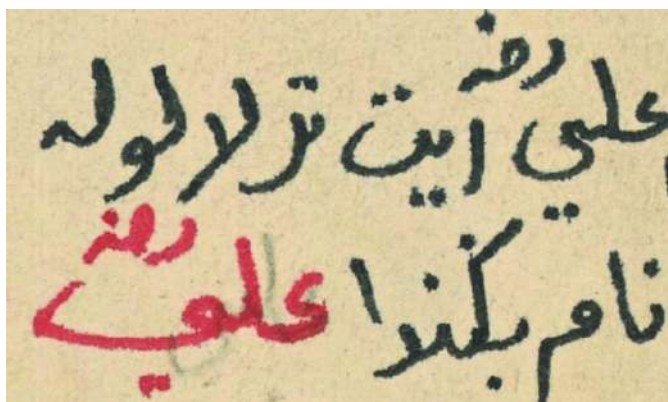 علي رضه ايت ترلالوله
نام بكندا علي رضه